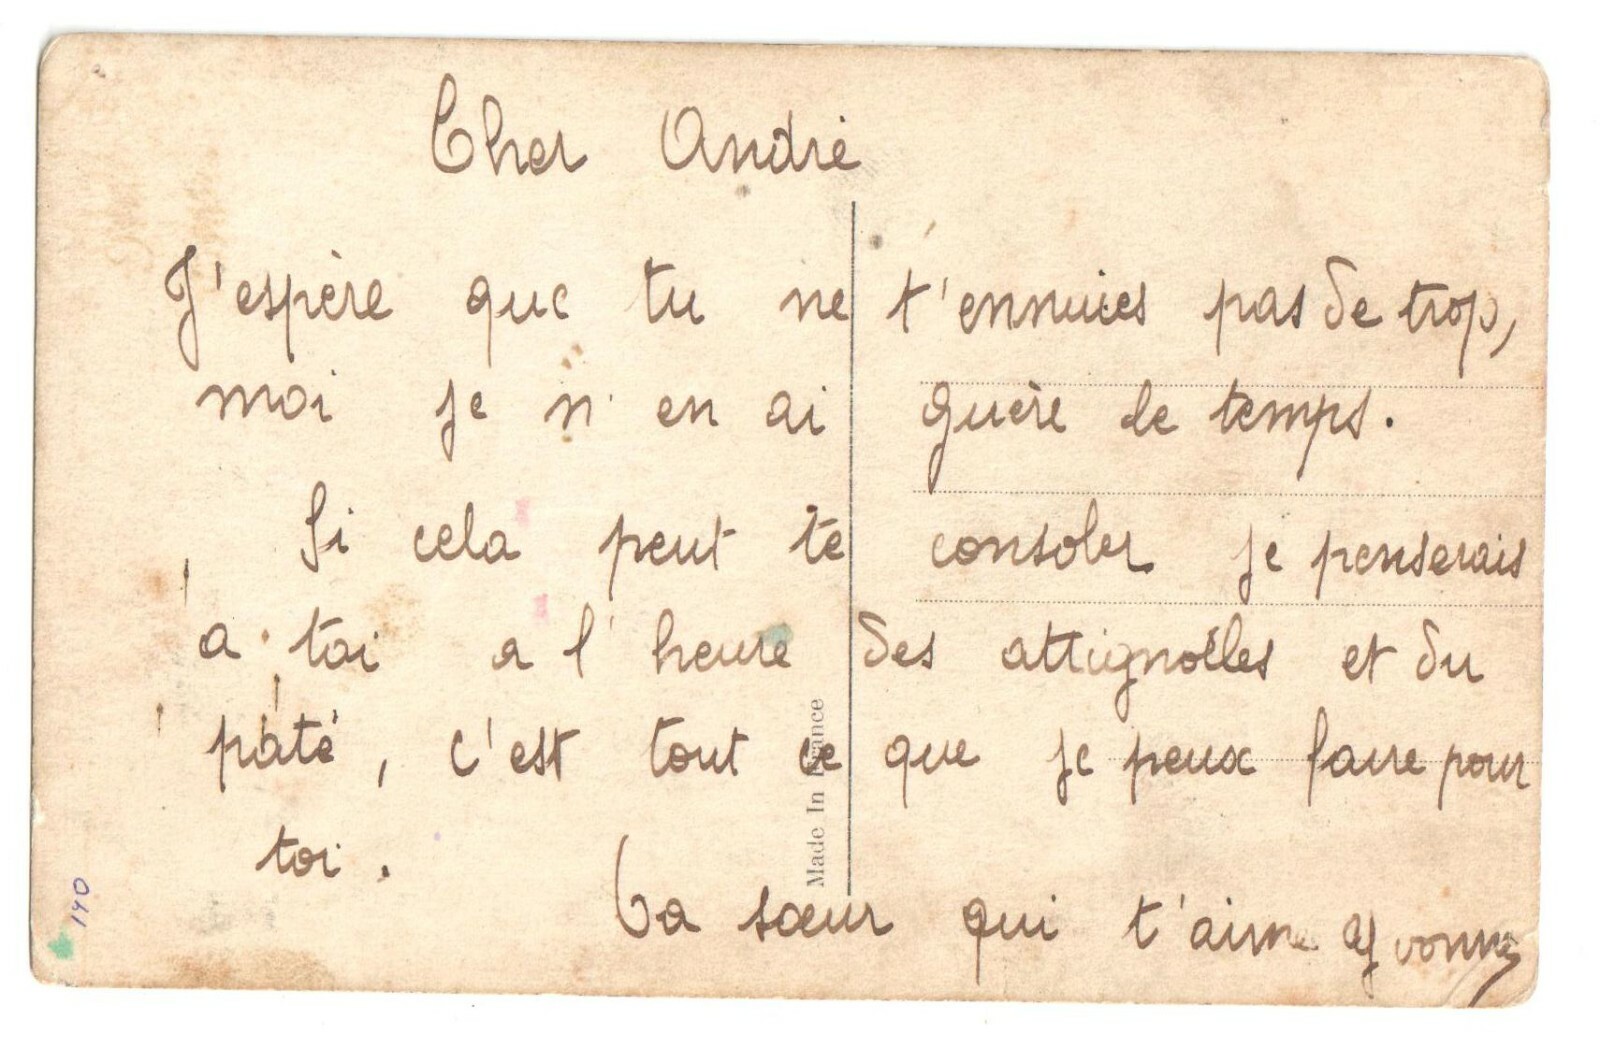 Cher André
J'espère que tu ne t'ennuies pas de trop,
moi je n'en ai guère le temps.
Si cela peut te consoler je penserais
a toi a l'heure des attignolles et du
pâté, c'est tout ce que je peux faire pour
toi.
Ta sœur qui t'aime Yvonne
Made In France
140